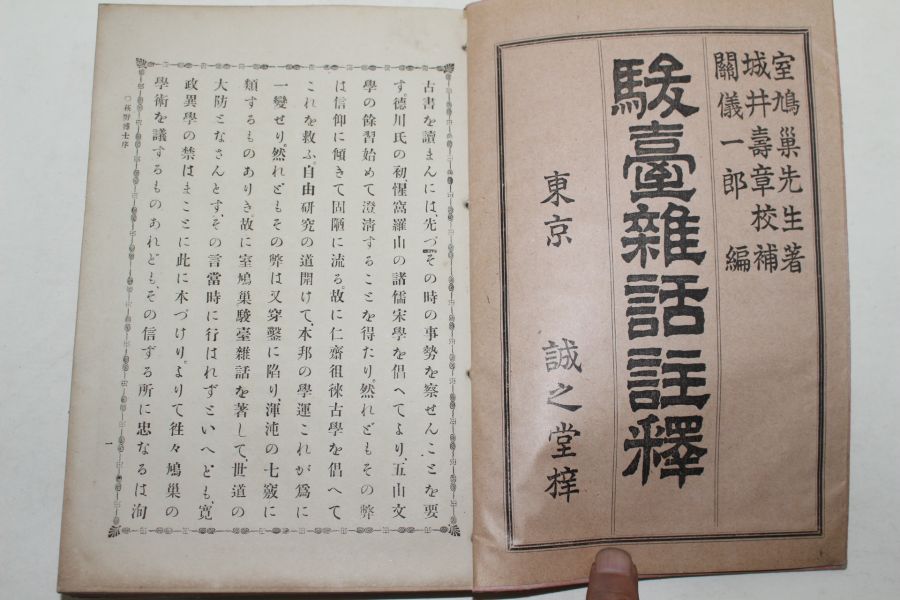 室鳩巢先生著
城井壽章校補
關儀一郎編
駿臺雜話註釋
東京 誠之堂梓
古書を讀まんには、先づその時の事勢を察せんことを要
す。德川氏の初惺窩羅山の諸儒宋學を倡へてより、五山文
學の餘習始めて澄淸することを得たり。然れどもその弊
は信仰に傾きて固陋に流る。故に仁齋徂徠古學を倡へて
これを救ふ。自由研究の道開けて、本邦の學運これが爲に
一變せり。然れどもその弊は又穿鑿に陷り、渾沌の七竅に
類するものありき。故に室鳩巢駿臺雜話を著して、世道の
大防となさんとす、その言當時に行はれずといへども、寬
政異學の禁はまことに此に本づけり。よりて徃々鳩巢の
學術を議するものあれども、その信ずる所に忠なるは洵
博士序
一